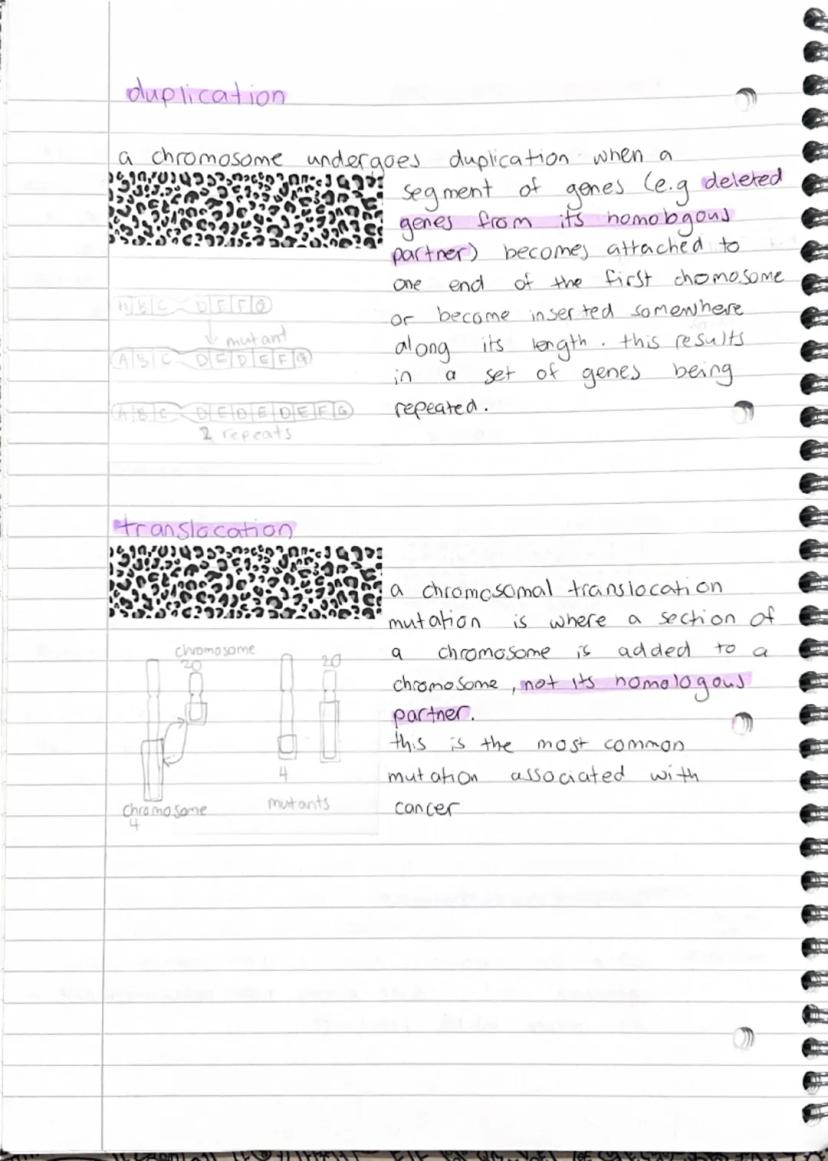 duplication
a chromosome undergoes duplication when a
segment of genes (e.g deleted
genes from its homologous
partner) becomes attached to
one end of the first chomosome
or become inserted somewhere
along its length. this results
in a set of genes being
repeated.
A B C D E F G
mutant
A B C D E D E F G
A B C D E D E D E F G
2 repeats
translocation
a chromosomal translocation
mutation is where a section of
a chromosome is added to a
chromosome, not its homologous
partner.
this is the most common
mutation associated with
cancer
chromosome
20 20
4
chromosome mutants
4